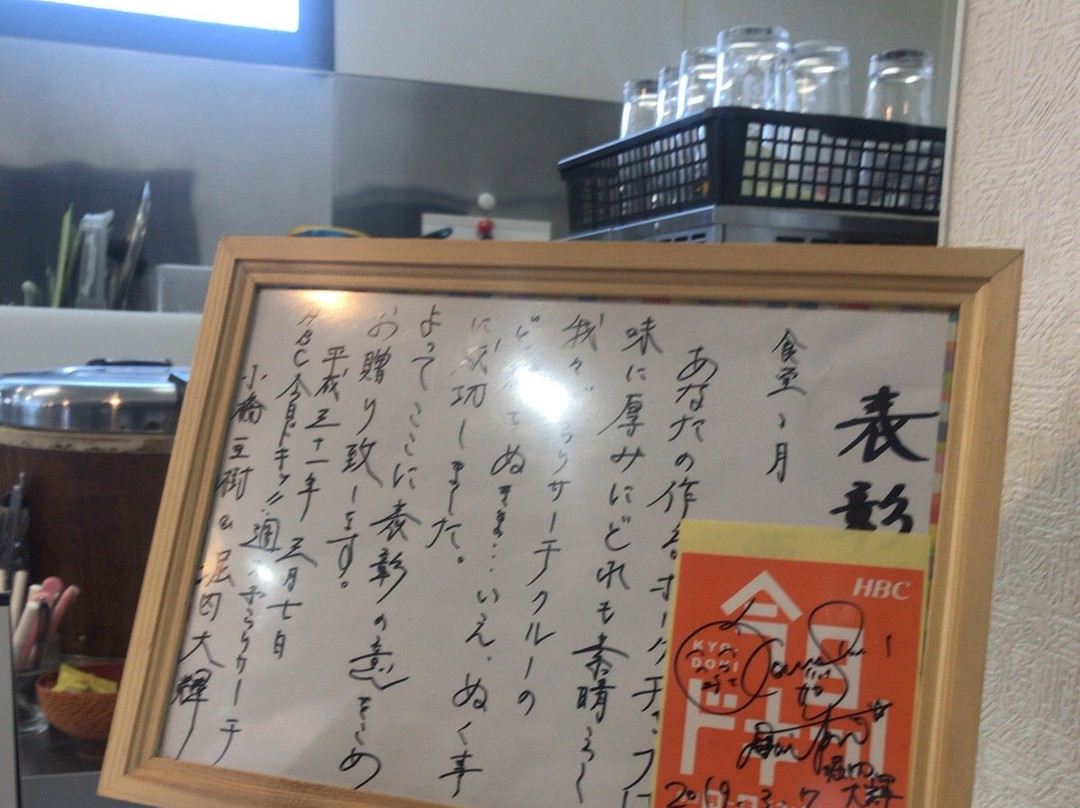 表彰
食堂 月
あなたの作る。ポークチャップは
味に厚みにどれも素晴らし
我々 らサーチクルーの
ど ぬきま…いえ、ぬく事
に成功しました。
よってここに表彰の意をこめ
お贈り致します。
平成三十一年 三月七日
HBC今日ドキッ!!週
小橋亜樹&堀内大輝
HBC
今日ドキッ
KYO
DOKI
堀内
大輝
2019.3.7